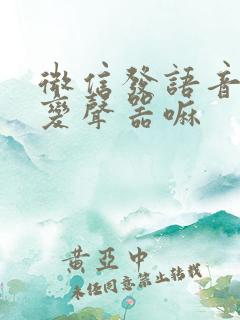 微信發語音
變聲器嘛
黃亞中
未经同意禁止转载